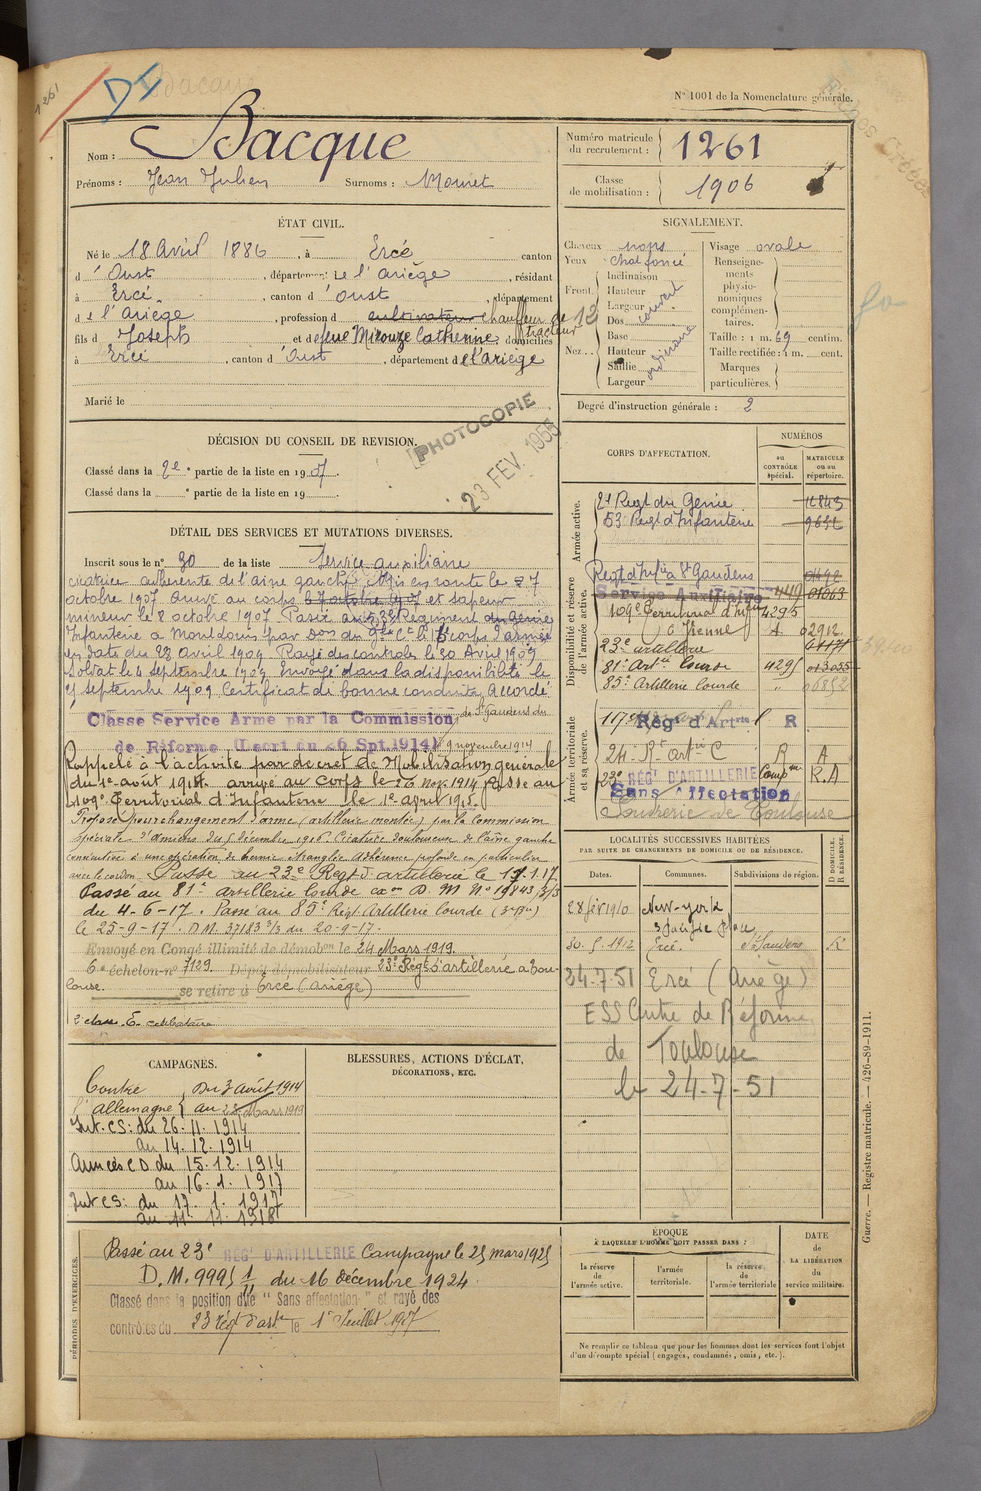 1261
DI
Bacque
N° 1001 de la Nomenclature générale.
Nom : Bacque
Prénoms : Jean Julien Surnoms : Mouret
Numéro matricule du recrutement : 1261
Classe de mobilisation : 1906
ÉTAT CIVIL.
Né le 18 Avril 1886, à Ercé canton
d'Oust, département de l'Ariège, résidant
à Ercé, canton d'Oust, département
de l'Ariège, profession de cultivateur chauffeur de tracteur 12
fils de Joseph et de feue Mirouze Catherine domiciliés
à Ercé, canton d'Oust, département de l'Ariège
Marié le
SIGNALEMENT.
Cheveux noirs Visage ovale
Yeux chat foncé Renseignements physionomiques complémentaires.
Front. Inclinaison
Hauteur
Largeur couvert
Nez... Dos
Base
Hauteur ordinaire
Saillie
Largeur
Taille : 1 m. 69 centim.
Taille rectifiée : 1 m. cent.
Marques particulières.
Degré d'instruction générale : 2
DÉCISION DU CONSEIL DE REVISION.
Classé dans la 2e partie de la liste en 1907.
Classé dans la e partie de la liste en 19
PHOTOCOPIE
23 FEV. 1955
DÉTAIL DES SERVICES ET MUTATIONS DIVERSES.
Inscrit sous le n° 30 de la liste Service auxiliaire
cicatrice adhérente de l'aine gauche Mis en route le 7
octobre 1907 Arrivé au corps 7 octobre 1907 et sapeur
mineur le 8 octobre 1907 Passé au 53e Régiment du Génie
Infanterie à Montlouis par
en date du 23 avril 1909 Rayé des controles le 30 Avril 1909
Soldat le 4 septembre 1909 Envoyé dans la disponibilité le
25 septembre 1909 Certificat de bonne conduite Accordé
Classé Service Armé par la Commission de St Gaudens du
de Réforme (Décret du 26 Spt. 1914) 9 novembre 1914
Rappelé à l'activité par décret de Mobilisation générale
du 1er août 1914. arrivé au corps le 26 Nov. 1914 passé au
109e Territorial d'Infanterie le 1er avril 1915.
Proposé pour changement d'arme (artillerie montée) par la Commission
spéciale d'Amiens du 5 décembre 1916. Cicatrice douloureuse de l'aine gauche
consécutive à une opération de hernie étranglée adhérence profonde en particulier
avec le cordon. Passé au 23e Régt d'artillerie le 17.1.17.
Passé au 81e artillerie lourde D. M. N° 19843 3/3
du 4-6-17. Passé au 85e Régt Artillerie Lourde
le 25-9-17. D.M. 37183 3/3 du 20-9-17.
Envoyé en Congé illimité de démobon le 24 Mars 1919.
6e échelon-n° 7129. Dépôt démobilisateur 23e Régt d'artillerie à Toulouse.
se retire à Ercé (Ariège)
CORPS D'AFFECTATION.
NUMÉROS
au CONTRÔLE spécial.
MATRICULE ou au répertoire.
Armée active.
2e Regt du Génie
53e Regt d'Infanterie 9652
Disponibilité et réserve de l'armée active.
Regt d'Infie à St Gaudens
Service Auxiliaire 449 01063
109e Territorial d'Infie 4295
A 02912
23e artillerie
81e Artie Lourde 4295 013055
85e Artillerie Lourde " 06852
Armée territoriale et sa réserve.
117e Régt d'Artrie R
24e Rt artie C R A
23e RÉGt D'ARTILLERIE Campne R.A
Sans Affectation
Poudrerie de Toulouse
LOCALITÉS SUCCESSIVES HABITÉES
PAR SUITE DE CHANGEMENTS DE DOMICILE OU DE RÉSIDENCE.
Dates. Communes. Subdivisions de région. D DOMICILE. R RÉSIDENCE.
28 fév 1910 New-York
30.5.1912 Ercé St Gaudens R
24-7-51 Ercé (Ariège)
ESS Centre de Réforme
de Toulouse
le 24-7-51
CAMPAGNES.
Contre l'Allemagne Du 3 août 1914
au 28 Mars 1919
Int. CS: du 26.11.1914
au 14.12.1914
Armées CD du 15.12.1914
au 16.1.1917
Int CS: du 17.1.1917
au 11.11.1918
BLESSURES, ACTIONS D'ÉCLAT,
DÉCORATIONS, ETC.
PÉRIODES D'EXERCICES.
Passé au 23e RÉGt D'ARTILLERIE Campagne le 25 mars 1925
D.M. 9995 1/11 du 16 décembre 1924.
Classé dans la position dite "Sans affectation" et rayé des
contrôles du 23 régt d'art le 1er Juillet 1907
ÉPOQUE
À LAQUELLE L'HOMME DOIT PASSER DANS :
la réserve de l'armée active.
l'armée territoriale.
la réserve de l'armée territoriale
DATE de LA LIBÉRATION du service militaire.
Ne remplir ce tableau que pour les hommes dont les services font l'objet
d'un décompte spécial (engagés, condamnés, omis, etc.).
Guerre. — Registre matricule. — 426-89-1911.